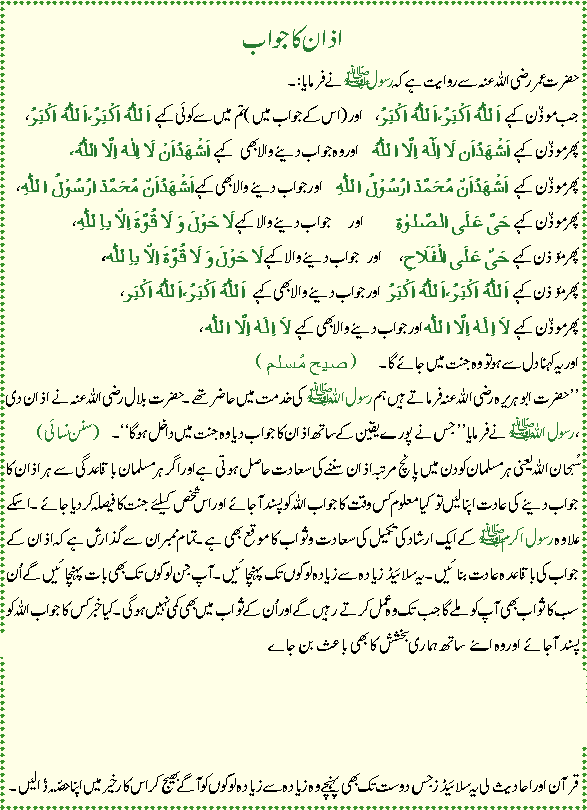 اذان کا جواب
حضرت عمر رضی اللہ عنہ سے روایت ہے کہ رسول ﷺ نے فرمایا:۔
جب موذّن کہے اَللّٰہُ اَکْبَرُ، اَللّٰہُ اَکْبَرُ، اور (اس کے جواب میں) تم میں سے کوئی کہے اَللّٰہُ اَکْبَرُ، اَللّٰہُ اَکْبَرُ،
پھر موذّن کہے اَشْھَدُاَن لَا اِلٰہَ اِلَّا اللّٰہُ اور وہ جواب دینے والا بھی کہے اَشْھَدُاَنْ لَا اِلٰہَ اِلَّا اللّٰہُ،
پھر موذّن کہے اَشْھَدُاَنَّ مُحَمَّدًا رَّسُوْلُ اللّٰہِ اور جواب دینے والا بھی کہے اَشْھَدُاَنَّ مُحَمَّدًا رَّسُوْلُ اللّٰہِ،
پھر موذّن کہے حَیَّ عَلَی الْصَّلٰوۃِ اور جواب دینے والا کہے لَا حَوْلَ وَ لَا قُوَّۃَ اِلَّا بِاللّٰہِ،
پھر موذن کہے حَیَّ عَلَی الْفَلَاحِ، اور جواب دینے والا کہے لَا حَوْلَ وَ لَا قُوَّۃَ اِلَّا بِاللّٰہِ،
پھر موذن کہے اَللّٰہُ اَکْبَرُ، اَللّٰہُ اَکْبَرُ اور جواب دینے والا بھی کہے اَللّٰہُ اَکْبَرُ، اَللّٰہُ اَکْبَرُ،
پھر موذّن کہے لَا اِلٰہَ اِلَّا اللّٰہُ اور جواب دینے والا بھی کہے لَا اِلٰہَ اِلَّا اللّٰہُ،
اور یہ کہنا دل سے ہو تو وہ جنت میں جائے گا۔ (صیح مُسلم)
’’حضرت ابو ہریرہ رضی اللہ عنہ فرماتے ہیں ہم رسول اللہ ﷺ کی خدمت میں حاضر تھے۔ حضرت بلال رضی اللہ عنہ نے اذان دی
، رسول اللہ ﷺ نے فرمایا ’’جس نے پورے یقین کے ساتھ اذان کا جواب دیا وہ جنت میں داخل ہوگا‘‘۔ (سنن نسائی)
سُبحان اللہ یعنی ہر مسلمان کو دن میں پانچ مرتبہ اذان سننے کی سعادت حاصل ہوتی ہے اور اگر ہر مسلمان باقاعدگی سے ہر اذان کا
جواب دینے کی عادت اپنا لیں تو کیا معلوم کس وقت کا جواب اللہ کو پسند آجائے اور اس شخص کیلئے جنت کا فیصلہ کر دیا جائے۔ اسکے
علاوہ رسول اکرم ﷺ کے ایک ارشاد کی تکمیل کی سعادت و ثواب کا موقع بھی ہے۔ تمام ممبران سے گذارش ہے کہ اذان کے
جواب کی باقاعدہ عادت بنائیں۔ یہ سلائیڈ زیادہ سے زیادہ لوگوں تک پہنچائیں۔ آپ جن لوگوں تک بھی بات پہنچائیں گے اُن
سب کا ثواب بھی آپ کو ملے گا جب تک وہ عمل کرتے رہیں گے اور اُن کے ثواب میں بھی کمی نہیں ہوگی۔ کیا خبر کس کا جواب اللہ کو
پسند آجائے اور وہ اسکے ساتھ ہماری بخشش کا بھی باعث بن جاے
قرآن اور احادیث لی یہ سلائیڈز جس دوست تک بھی پہنچے وہ زیادہ سے زیادہ لوگوں کو آگے بھیج کر اس کار خیر میں اپنا حصّہ ڈالیں۔